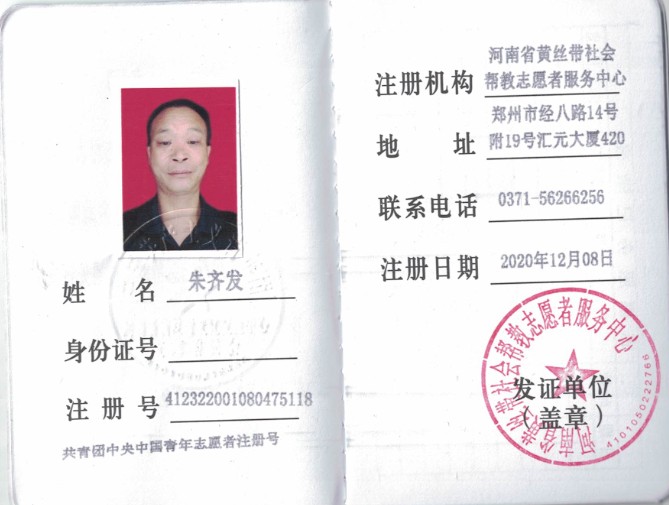 姓 名 朱齐发
身份证号
注 册 号 412322001080475118
共青团中央中国青年志愿者注册号
注册机构 河南省黄丝带社会
帮教志愿者服务中心
地 址 郑州市经八路14号
附19号汇元大厦420
联系电话 0371-56266256
注册日期 2020年12月08日
河南省黄丝带社会帮教志愿者服务中心
发证单位
（盖章）
4101050222766